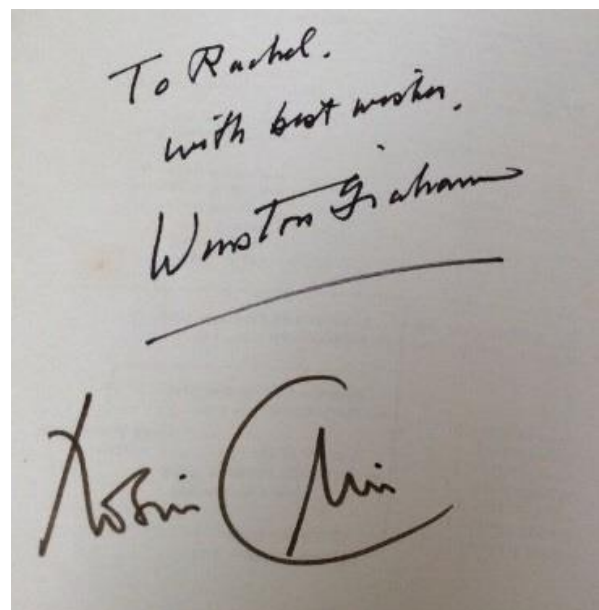 To Rachel.
with best wishes.
Winston Graham
Robin